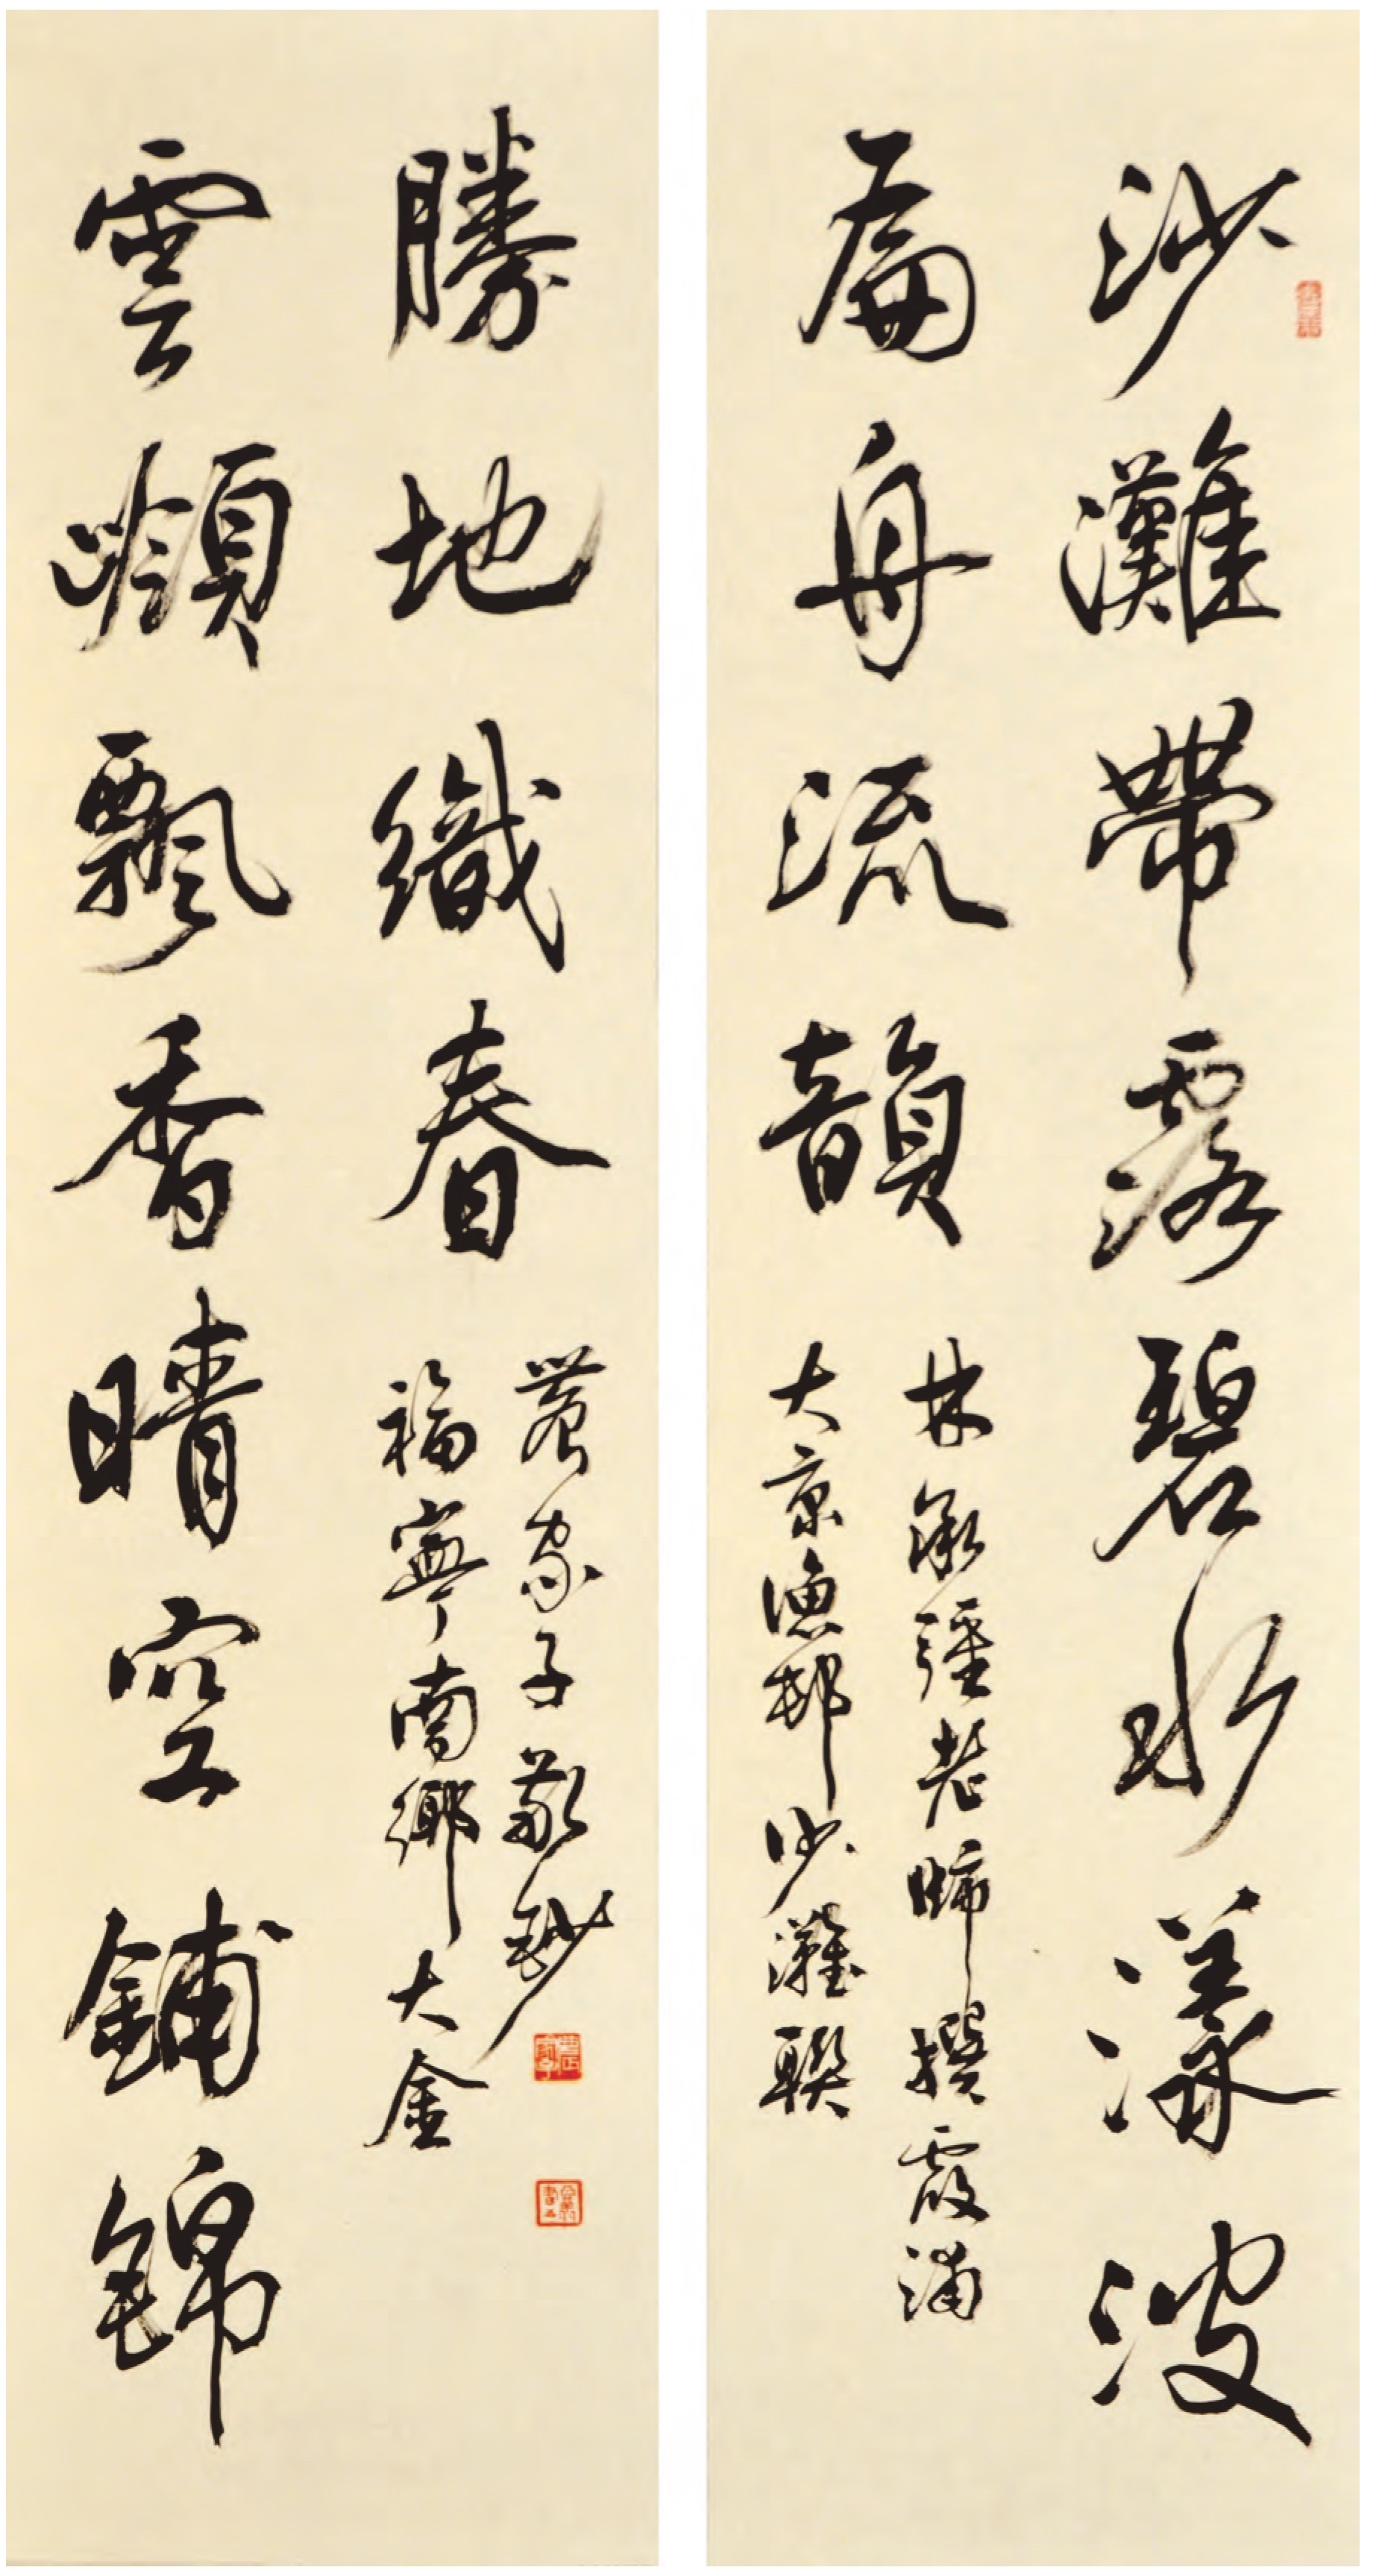 沙灘帶露碧水漾波
扁舟流韻
林承彊老師撰霞浦
大京漁邨沙灘聯
雲嶺飄香晴空鋪錦
勝地織春
福寧南鄉大金
農家子敬鈔